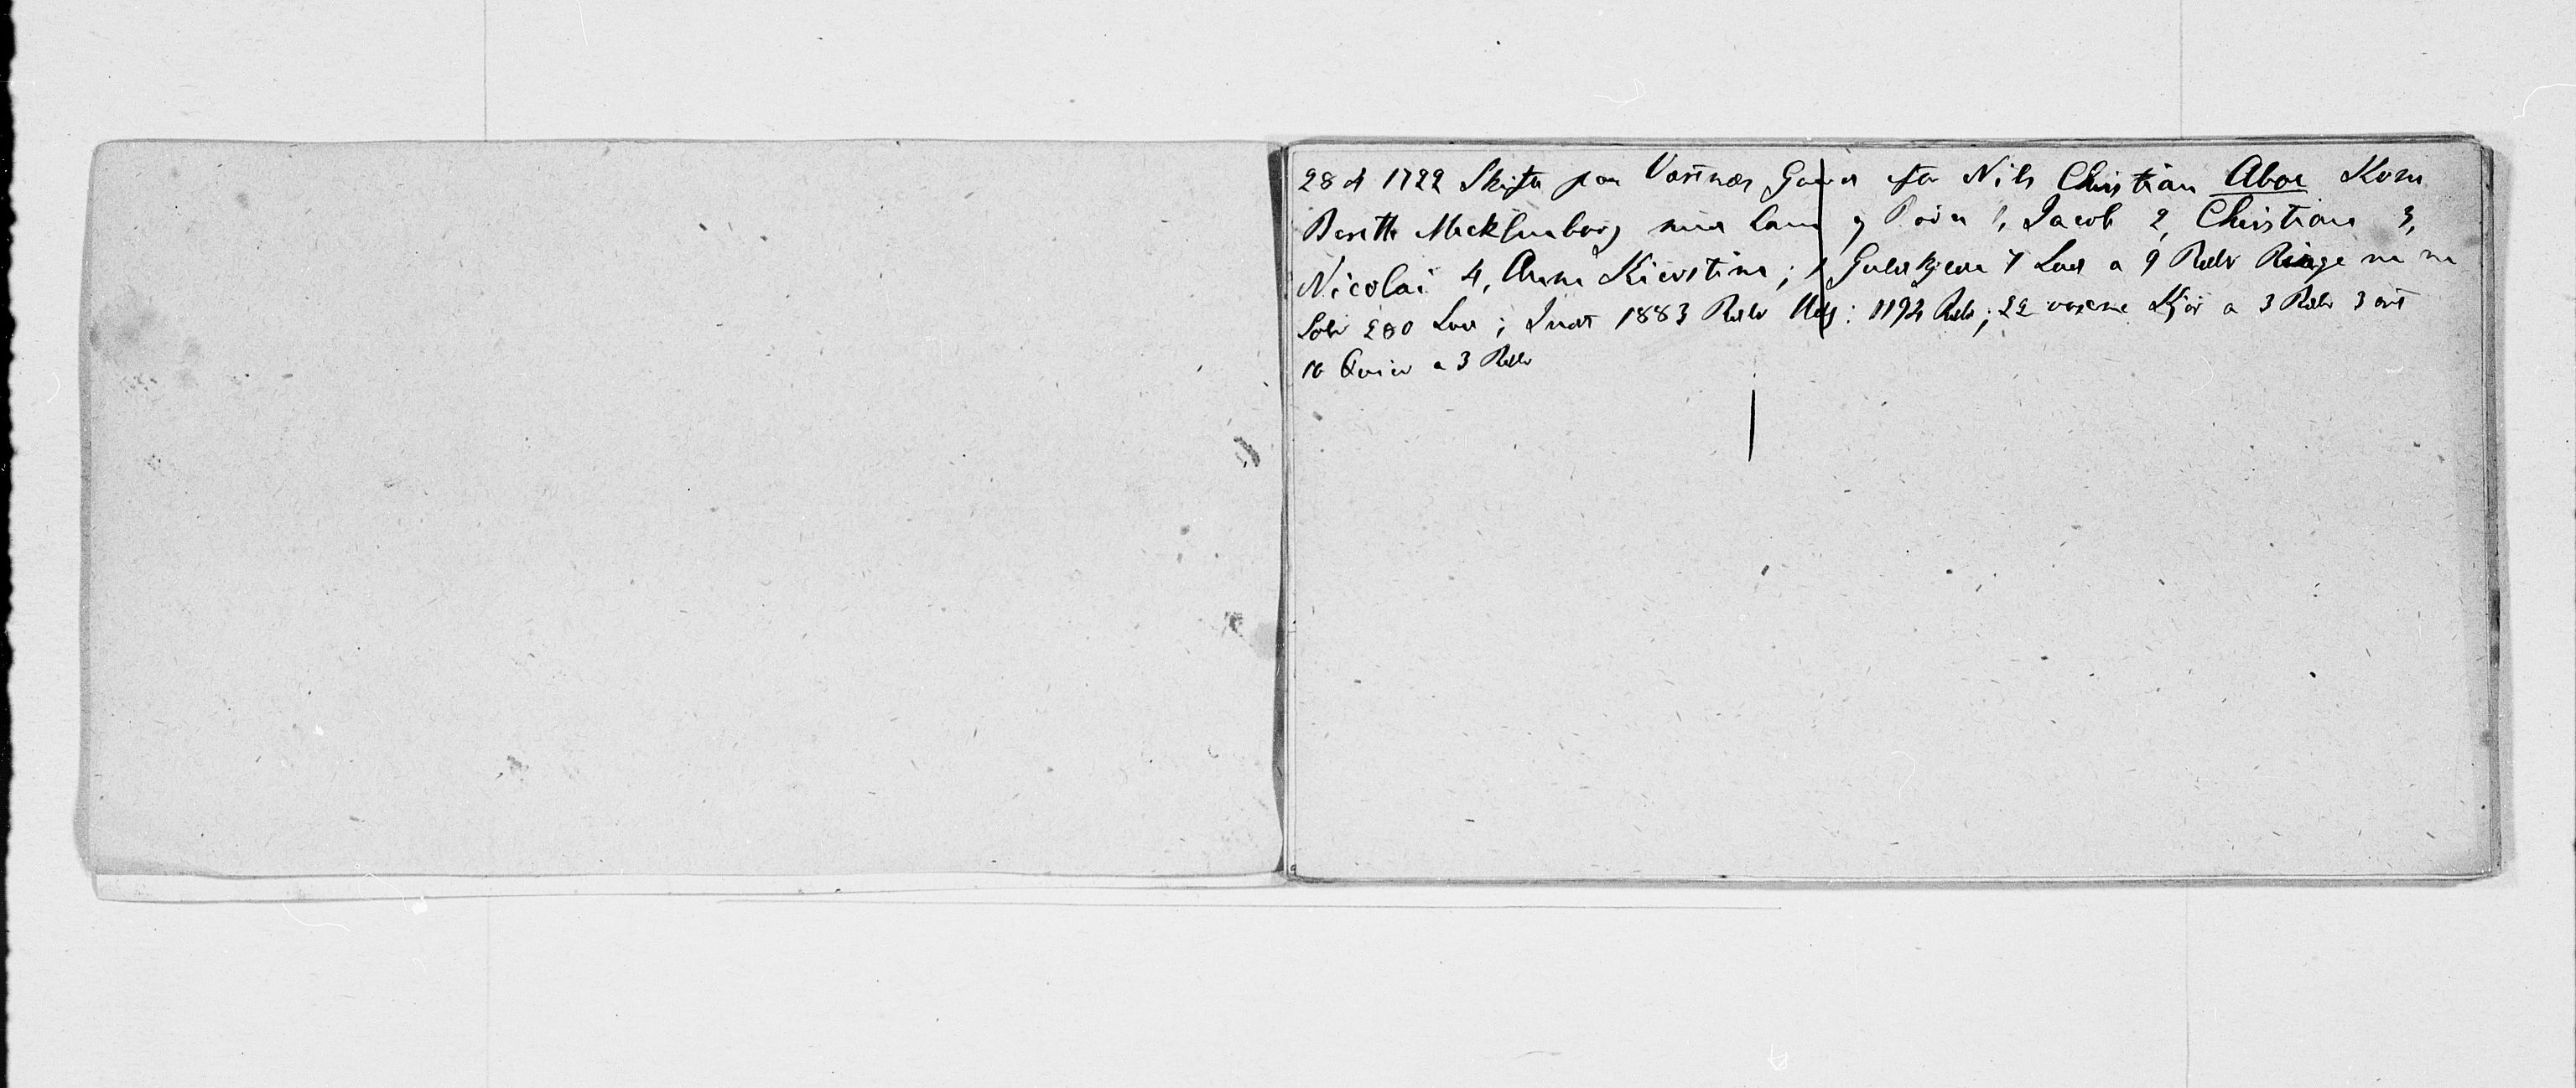 28 4 1722 Skifte paa Vorsnæs Gaard efter Nils Christian Aboe Kone
Beritte Mecklenborg med ham 5 Børn 1, Jacob 2, Christiane 3,
Nicolai 4, Anna Kierstine; 1 Guldkjede 7 Lod a 9 Rdlr Ringe
Sølv 280 Lod; Indt 1883 Rdlr Udg: 1192 Rdlr; 22 voxne Kjør a 3 Rdlr 3 ort
10 Qvier a 3 Rdlr